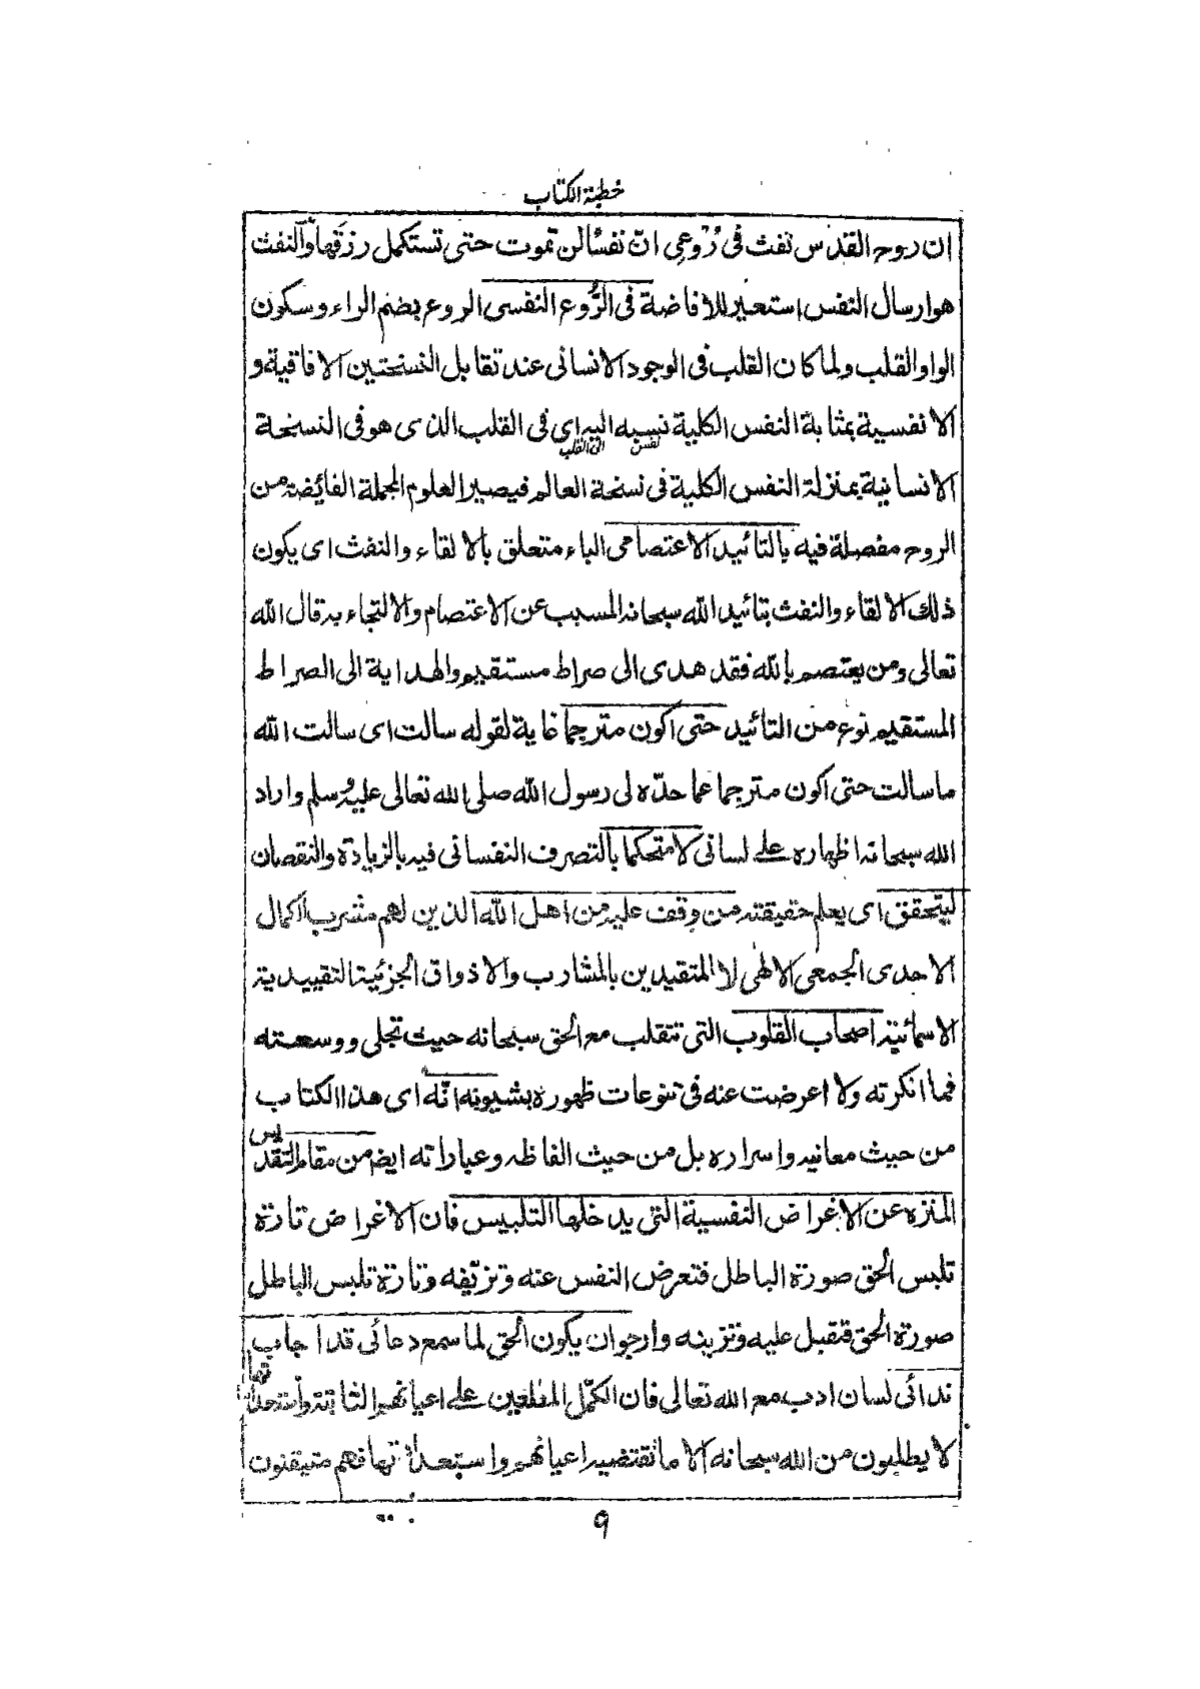 خطبة الكتاب
ان روح القدس نفث فى رُوعى انّ نفسًا لن تموت حتى تستكمل رزقها والنفث
هو ارسال النفس استعير للافاضة فى الرُّوع النفسى الروع بضم الراء وسكون
الواو القلب ولما كان القلب فى الوجود الانسانى عند تقابل النسختين الافاقية و
الانفسية بمثابة النفس الكلية نسبه اليه اى فى القلب الذى هو فى النسخة
نفس الى القلب
الانسانية بمنزلة النفس الكلية فى نسخة العالم فيصير العلوم المجملة الفائضة من
الروح مفصلة فيه بالتائيد الاعتصامى الباء متعلق بالالقاء والنفث اى يكون
ذلك الالقاء والنفث بتائيد الله سبحانه المسبب عن الاعتصام والالتجاء به قال الله
تعالى ومن يعتصم بالله فقد هدى الى صراط مستقيم والهداية الى الصراط
المستقيم نوع من التائيد حتى اكون مترجما غاية لقوله سالت اى سالت الله
ما سالت حتى اكون مترجما عما حدّه لى رسول الله صلى الله تعالى عليه وسلم واراد
الله سبحانه اظهاره على لسانى لا متحكما بالتصرف النفسانى فيه بالزيادة والنقصان
ليتحقق اى يعلم حقيقته من وقف عليه من اهل الله الذين لهم مشرب الكمال
الاحدى الجمعى الالهى لا المتقيدين بالمشارب والاذواق الجزئية التقييدية
الاسمائية اصحاب القلوب التى تتقلب مع الحق سبحانه حيث تجلى ووسعته
فما انكرته ولا اعرضت عنه فى تنوعات ظهوره بشيونه انّه اى هذا الكتاب
من حيث معانيه واسراره بل من حيث الفاظه وعباراته ايضا من مقام التقديس
المنزه عن الاغراض النفسية التى يدخلها التلبيس فان الاغراض تارة
تلبس الحق صورة الباطل فتعرض النفس عنه وتزيّفه وتارة تلبس الباطل
صورة الحق فتقبل عليه وتزينه وارجوان يكون الحق لما سمع دعائى قد اجاب
ندائى لسان ادب مع الله تعالى فان الكمّل المطلعين على اعيانهم الثابتة واستعداداتها
لا يطلبون من الله سبحانه الا ما تقتضيه اعيانهم واستعداداتها فهم متيقنون
9